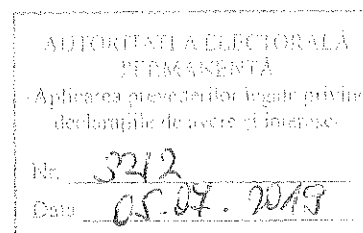 AUTORITATEA ELECTORALĂ
PERMANENTĂ
Aplicarea prevederilor legale privind
declarațiile de avere și interese
Nr. 3212
Data 05.07.2019